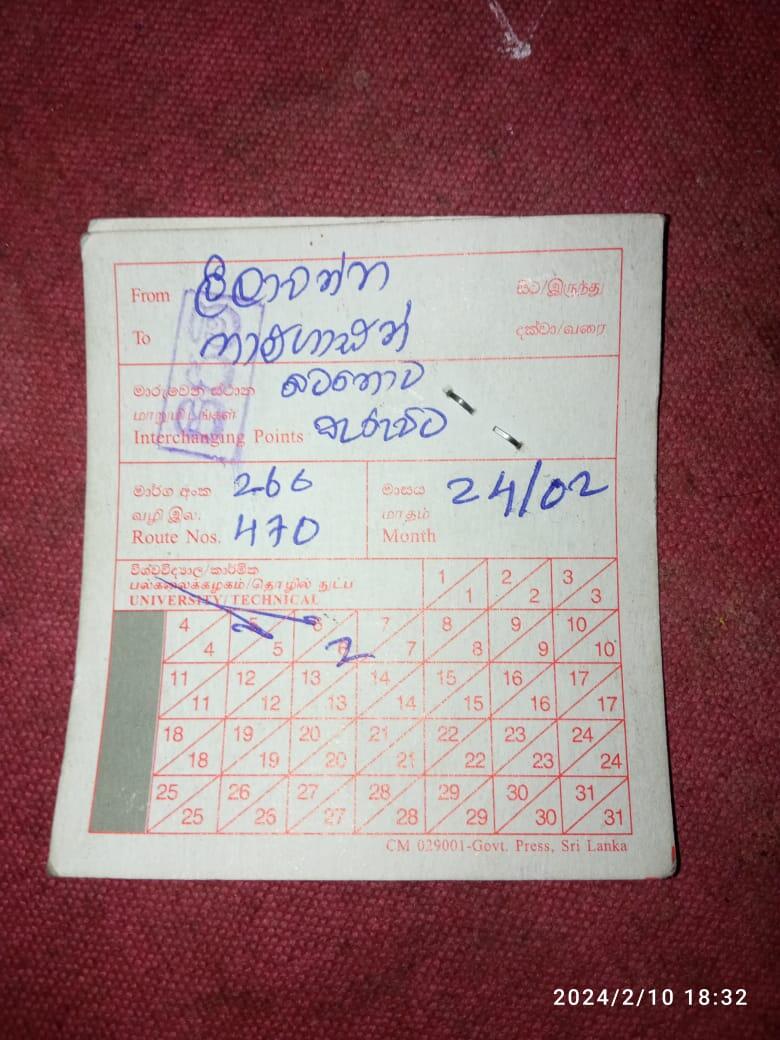 From ලීලාවත්ත සිට/இருந்து
To දක්වා/வரை
මාරුවෙන ස්ථාන
மாறுமிடங்கள்
Interchanging Points
මාර්ග අංක 266
வழி இல.
Route Nos. 470
මාසය 24/02
மாதம்
Month
විශ්වවිද්‍යාල/කාර්මික
பல்கலைக்கழகம்/தொழில் நுட்ப
UNIVERSITY/TECHNICAL
1 1 2 2 3 3
4 4 5 5 6 6 7 7 8 8 9 9 10 10
2
11 11 12 12 13 13 14 14 15 15 16 16 17 17
18 18 19 19 20 20 21 21 22 22 23 23 24 24
25 25 26 26 27 27 28 28 29 29 30 30 31 31
CM 029001-Govt. Press, Sri Lanka
2024/2/10 18:32